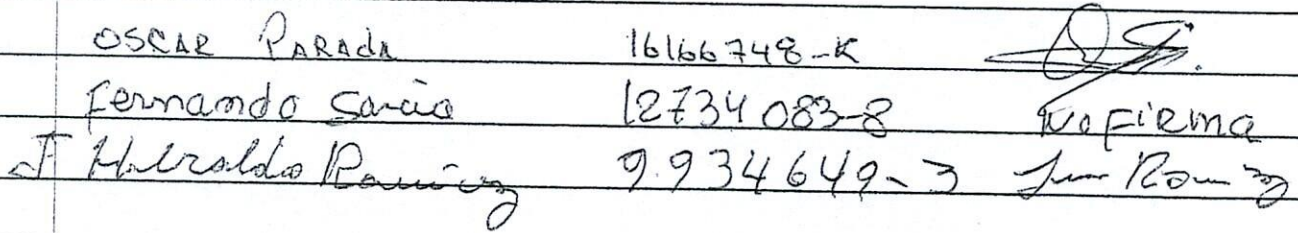 OSCAR PARAdA 16166748-K
Fernando Garcia 12734083-8 No FiRma
J Heraldo Ramirez 9.934649-3 Juan Ramirez